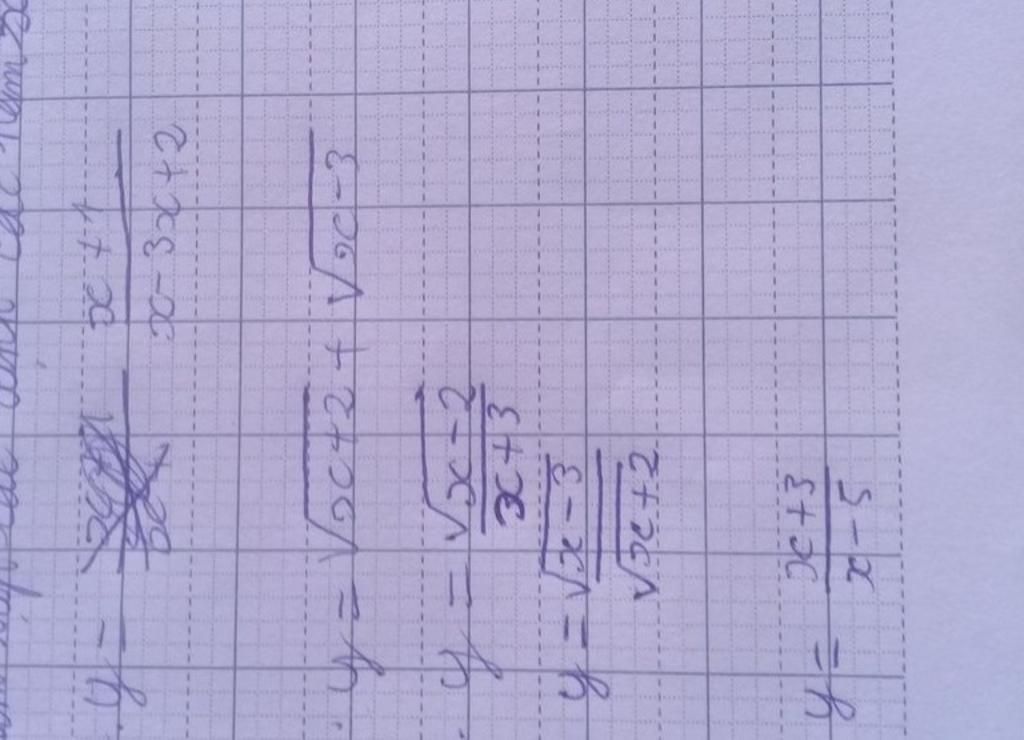 y = \frac{x+1}{x-3x+2}
y = \sqrt{x+2} + \sqrt{x-3}
y = \frac{\sqrt{x-2}}{x+3}
y = \frac{\sqrt{x-3}}{\sqrt{x+2}}
y = \frac{x+3}{x-5}